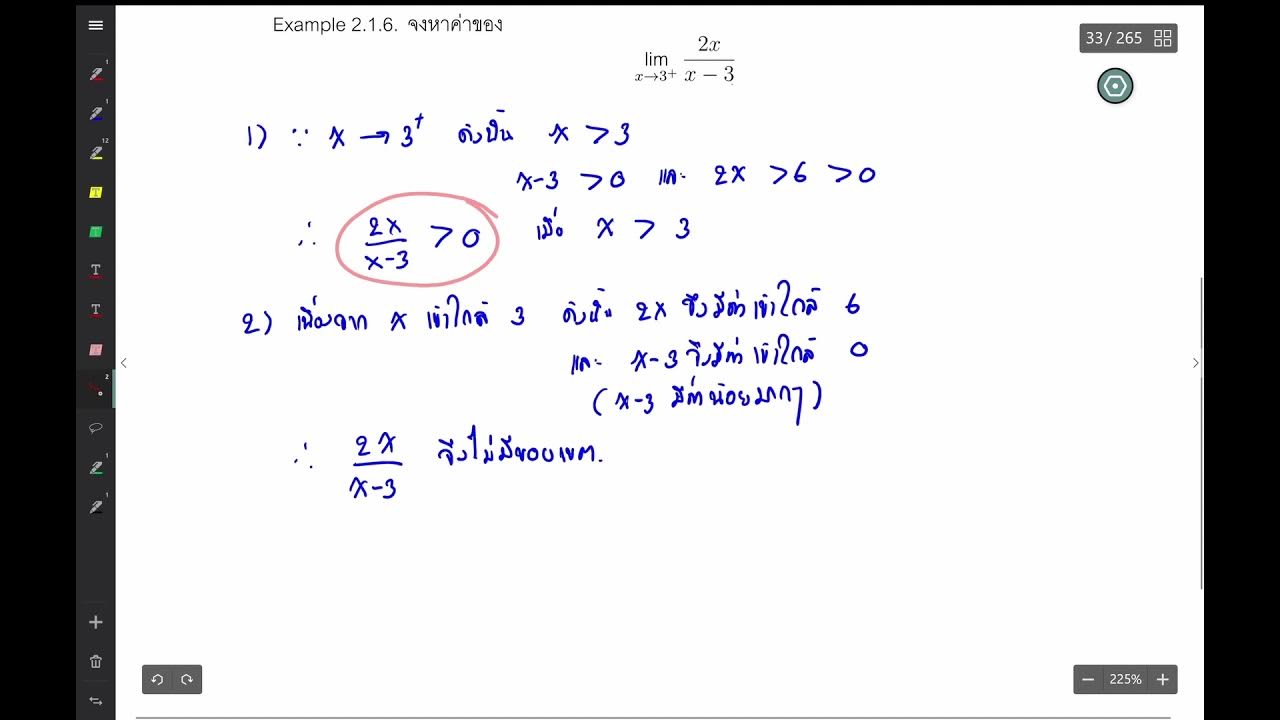 Example 2.1.6. จงหาค่าของ
lim x→3⁺ 2x/(x − 3)
33 / 265
1) ∵ x → 3⁺ ดังนั้น x > 3
x-3 > 0 และ 2x > 6 > 0
∴ 2x/(x-3) > 0 เมื่อ x > 3
2) เนื่องจาก x เข้าใกล้ 3 ดังนั้น 2x จึงมีค่าเข้าใกล้ 6
และ x-3 จึงมีค่าเข้าใกล้ 0
(x-3 มีค่าน้อยมากๆ)
∴ 2x/(x-3) จึงไม่มีขอบเขต.
225%